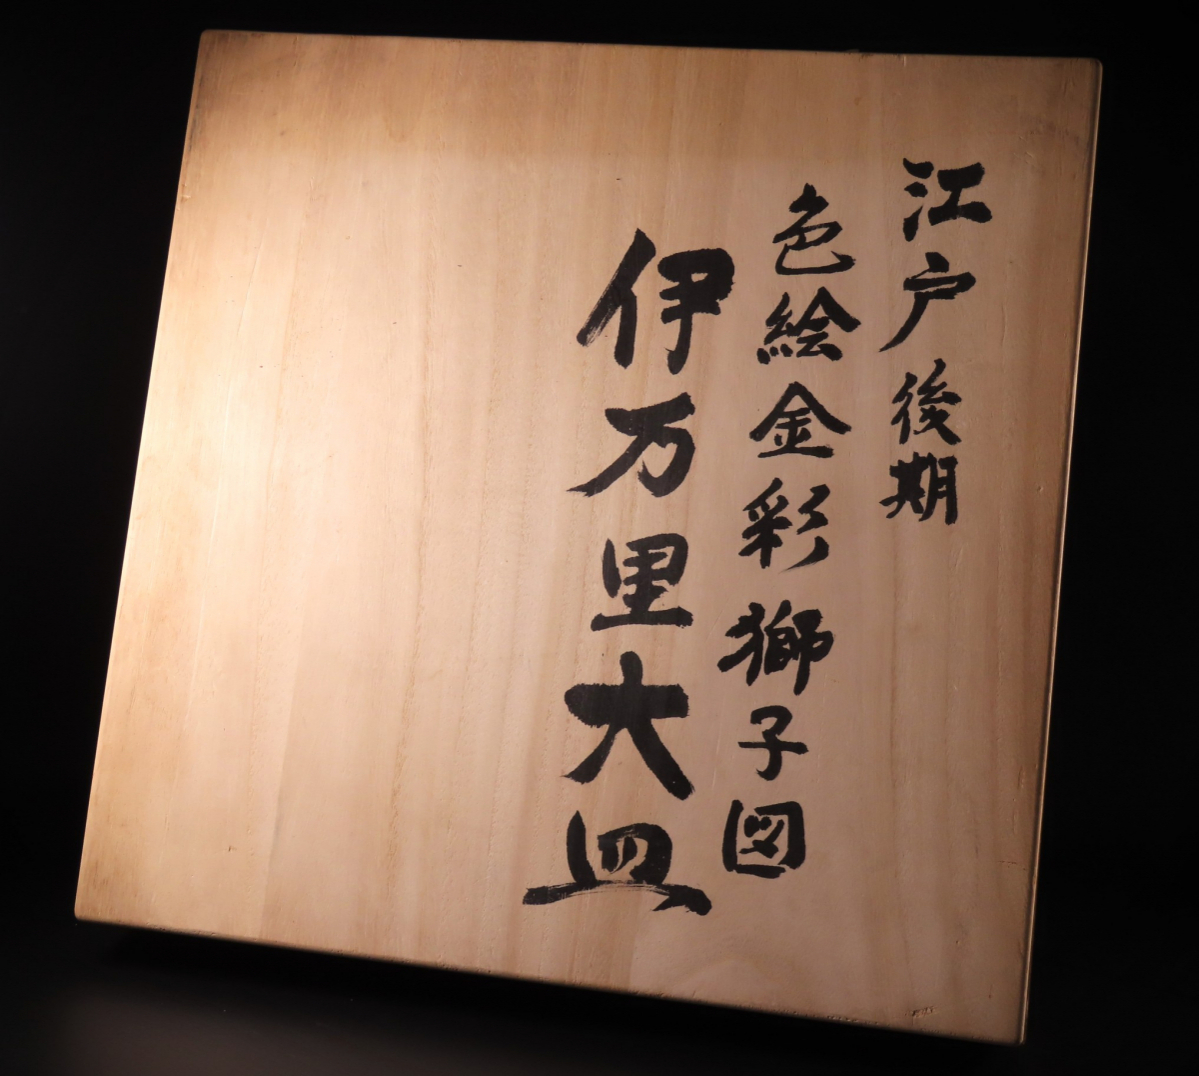 江戸後期
色絵金彩獅子図
伊万里大皿